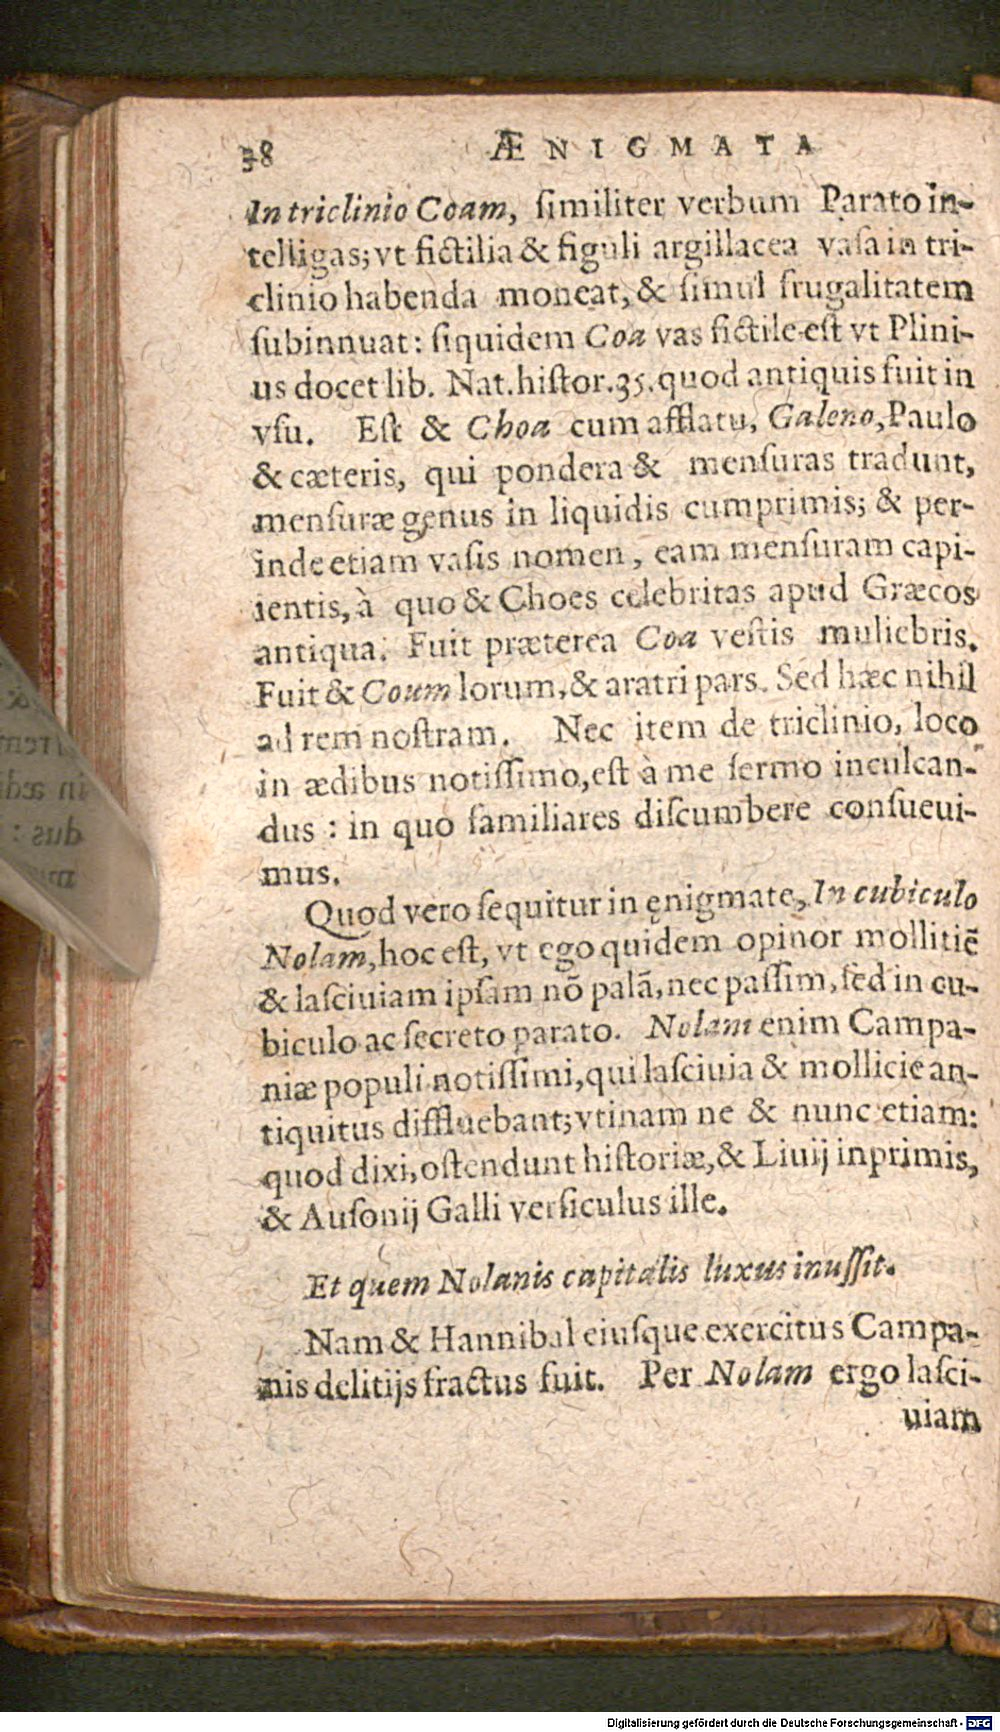 38 ÆNIGMATA
In triclinio Coam, ſimiliter verbum Parato in-
telligas; vt fictilia & figuli argillacea vaſa in tri-
clinio habenda moneat, & ſimul frugalitatem
ſubinnuat: ſiquidem Coa vas fictile eſt vt Plini-
us docet lib. Nat. hiſtor. 35. quod antiquis fuit in
vſu. Eſt & Choa cum afflatu, Galeno, Paulo
& cæteris, qui pondera & menſuras tradunt,
menſuræ genus in liquidis cumprimis; & per-
inde etiam vaſis nomen, eam menſuram capi-
ientis, à quo & Choes celebritas apud Græcos
antiqua. Fuit præterea Coa veſtis muliebris.
Fuit & Coum lorum, & aratri pars. Sed hæc nihil
ad rem noſtram. Nec item de triclinio, loco
in ædibus notiſſimo, eſt à me ſermo inculcan-
dus : in quo familiares diſcumbere conſueui-
mus.
Quod vero ſequitur in ęnigmate, In cubiculo
Nolam, hoc eſt, vt ego quidem opinor mollitiē
& laſciuiam ipſam nō palā, nec paſſim, ſed in cu-
biculo ac ſecreto parato. Nolam enim Campa-
niæ populi notiſſimi, qui laſciuia & mollicie an-
tiquitus diffluebant; vtinam ne & nunc etiam:
quod dixi, oſtendunt hiſtoriæ, & Liuij inprimis,
& Auſonij Galli verſiculus ille.
Et quem Nolanis capitalis luxus inuſſit.
Nam & Hannibal eiuſque exercitus Campa-
nis delitijs fractus fuit. Per Nolam ergo laſci-
uiam
Digitalisierung gefördert durch die Deutsche Forschungsgemeinschaft - DFG